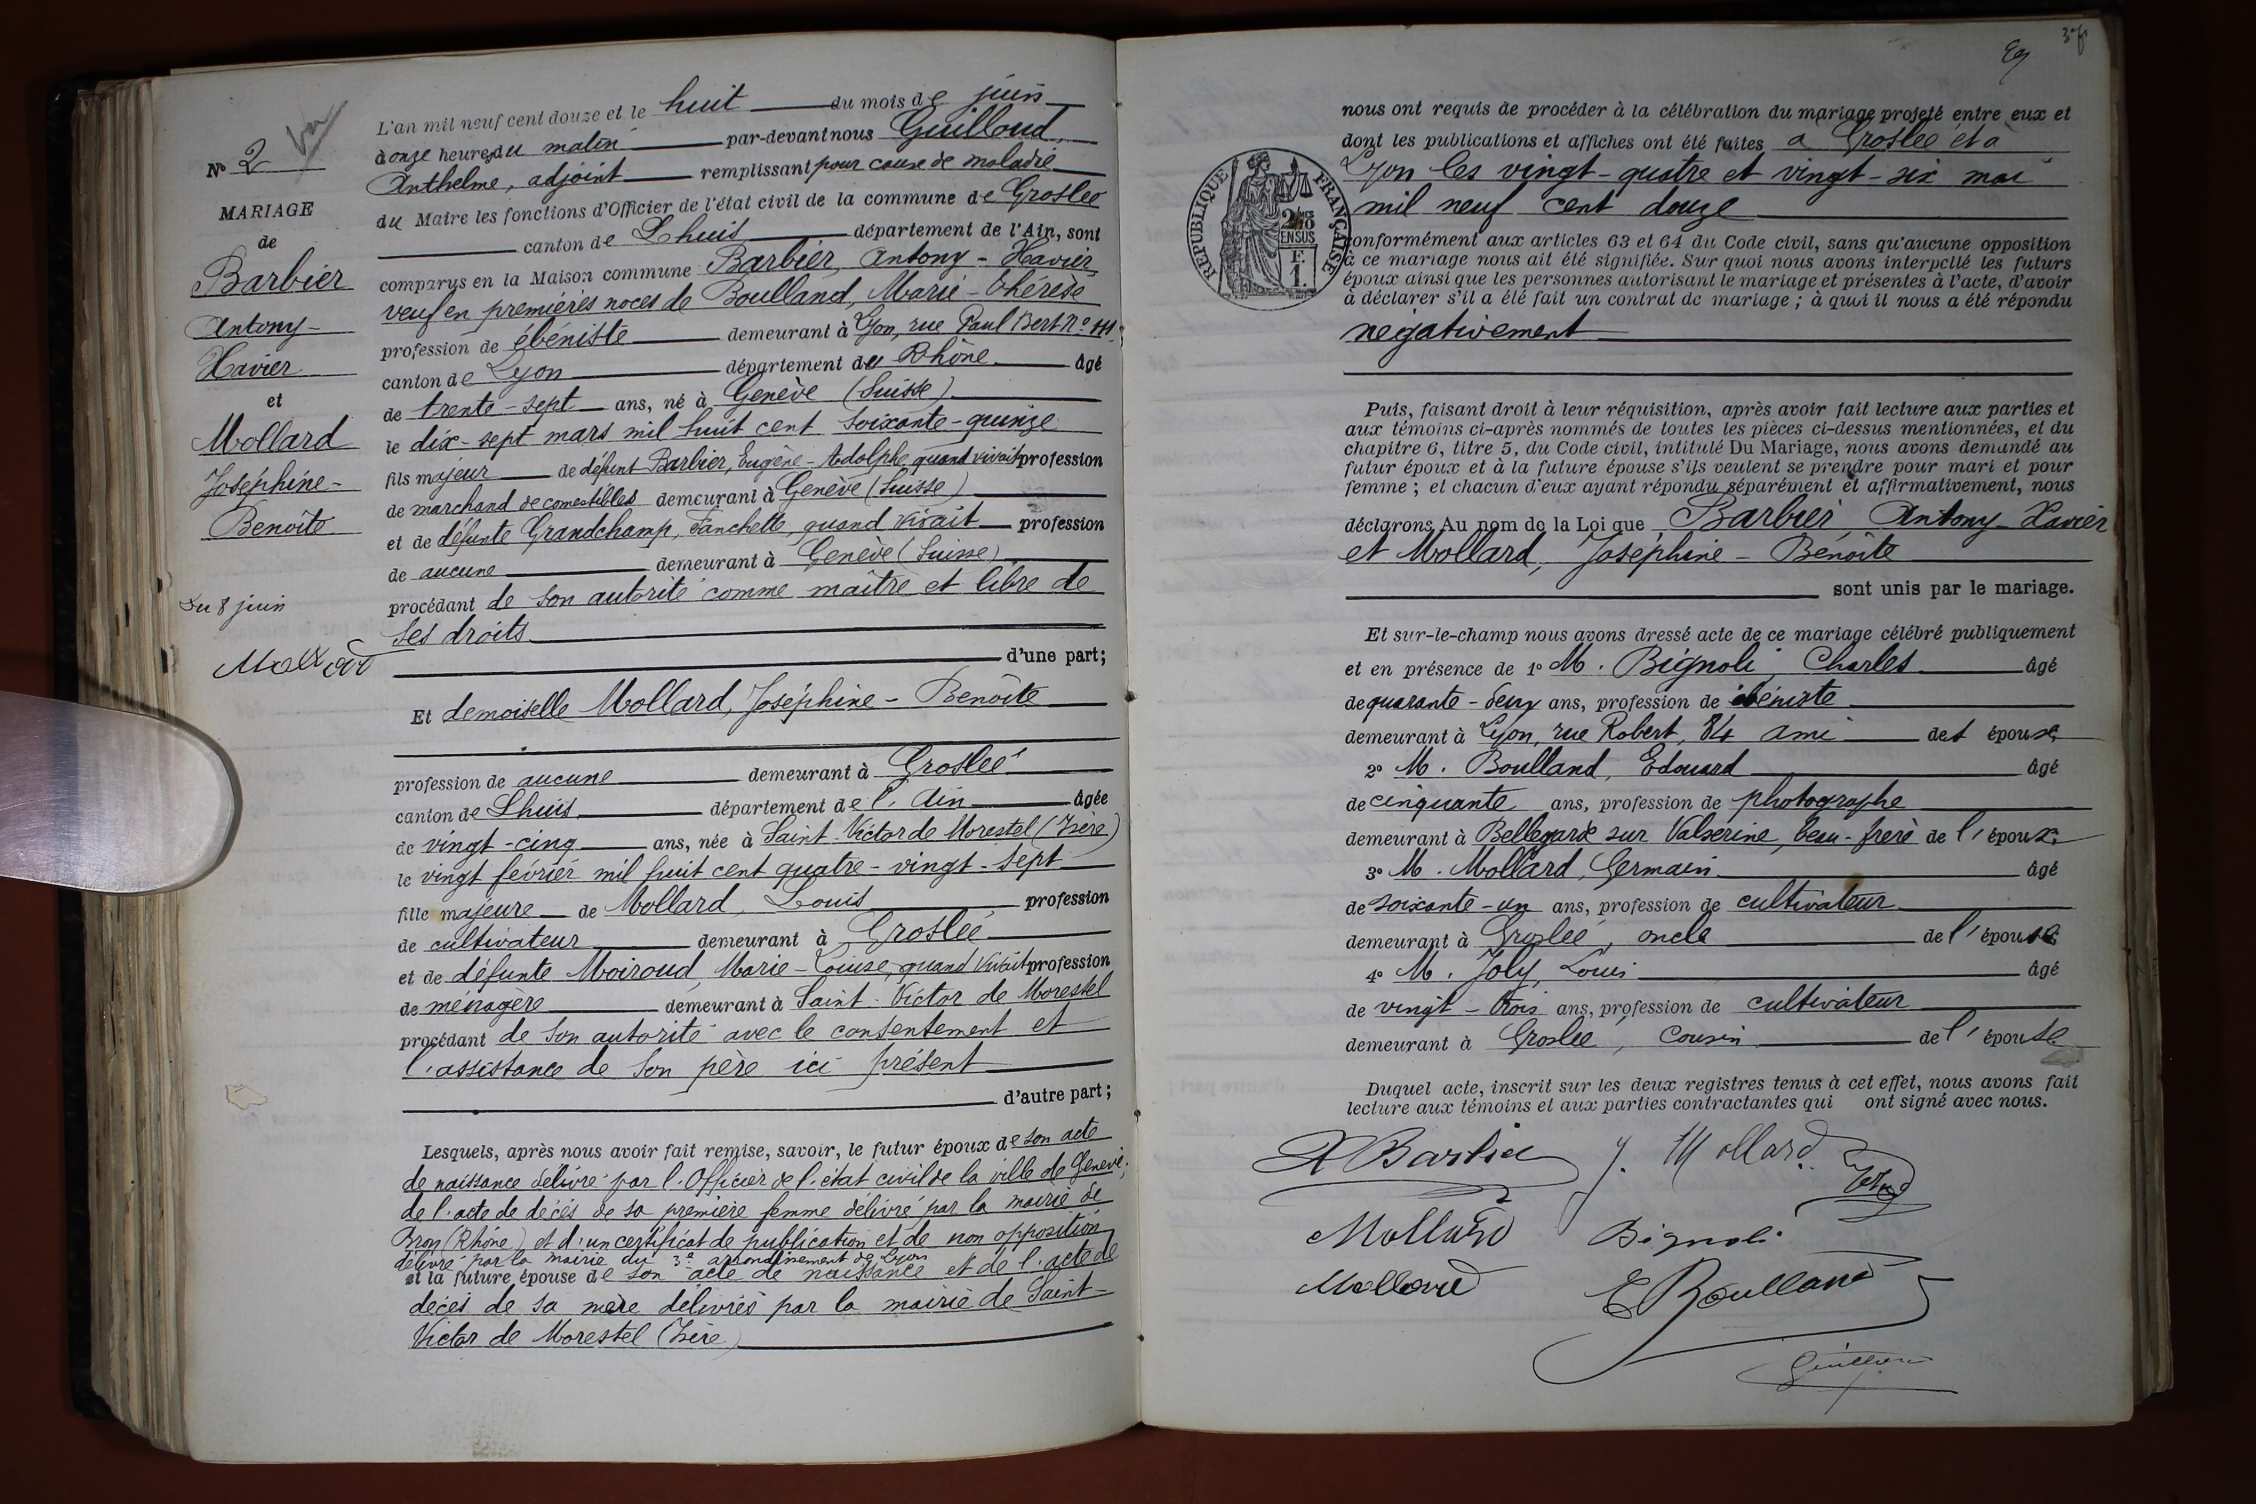 Nº 2
MARIAGE
de
Barbier
Antony-
Xavier
et
Mollard
Joséphine-
Benoîte
Du 8 juin
Mollard
L'an mil neuf cent douze et le huit du mois de juin
à onze heures du matin par-devant nous Guilloud,
Anthelme, adjoint remplissant pour cause de maladie
du Maire les fonctions d'Officier de l'état civil de la commune de Groslée
canton de Lhuis département de l'Ain, sont
comparus en la Maison commune Barbier, Antony-Xavier,
veuf en premières noces de Boulland, Marie-Thérèse
profession de ébéniste demeurant à Lyon, rue Paul Bert nº 111
canton de Lyon département du Rhône âgé
de trente-sept ans, né à Genève (Suisse)
le dix-sept mars mil huit cent soixante-quinze
fils majeur de défunt Barbier, Eugène-Adolphe, quand vivait profession
de marchand de comestibles demeurant à Genève (Suisse)
et de défunte Grandchamp, Fanchette, quand vivait profession
de aucune demeurant à Genève (Suisse)
procédant de son autorité comme maître et libre de
ses droits
d'une part;
Et demoiselle Mollard, Joséphine-Benoîte
profession de aucune demeurant à Groslée
canton de Lhuis département de l'Ain âgée
de vingt-cinq ans, née à Saint-Victor de Morestel (Isère)
le vingt février mil huit cent quatre-vingt-sept
fille majeure de Mollard, Louis profession
de cultivateur demeurant à Groslée
et de défunte Moiroud, Marie-Louise, quand vivait profession
de ménagère demeurant à Saint-Victor de Morestel
procédant de son autorité avec le consentement et
l'assistance de son père ici présent
d'autre part;
Lesquels, après nous avoir fait remise, savoir, le futur époux de son acte
de naissance délivré par l'Officier de l'état civil de la ville de Genève;
de l'acte de décès de sa première femme délivré par la mairie de
Bron (Rhône) et d'un certificat de publication et de non opposition
délivré par la mairie du 3e arrondissement de Lyon
et la future épouse de son acte de naissance et de l'acte de
décès de sa mère délivrés par la mairie de Saint-
Victor de Morestel (Isère)
REPUBLIQUE FRANÇAISE
2/10es
EN SUS
F.
1.
nous ont requis de procéder à la célébration du mariage projeté entre eux et
dont les publications et affiches ont été faites à Groslée et à
Lyon les vingt-quatre et vingt-six mai
mil neuf cent douze
conformément aux articles 63 et 64 du Code civil, sans qu'aucune opposition
à ce mariage nous ait été signifiée. Sur quoi nous avons interpellé les futurs
époux ainsi que les personnes autorisant le mariage et présentes à l'acte, d'avoir
à déclarer s'il a été fait un contrat de mariage; à quoi il nous a été répondu
négativement
Puis, faisant droit à leur réquisition, après avoir fait lecture aux parties et
aux témoins ci-après nommés de toutes les pièces ci-dessus mentionnées, et du
chapitre 6, titre 5, du Code civil, intitulé Du Mariage, nous avons demandé au
futur époux et à la future épouse s'ils veulent se prendre pour mari et pour
femme; et chacun d'eux ayant répondu séparément et affirmativement, nous
déclarons Au nom de la Loi que Barbier Antony-Xavier
et Mollard, Joséphine-Bénoîte
sont unis par le mariage.
Et sur-le-champ nous avons dressé acte de ce mariage célébré publiquement
et en présence de 1º M. Bignoli Charles âgé
de quarante-deux ans, profession de ébéniste
demeurant à Lyon, rue Robert, 84 ami des époux
2º M. Boulland, Edouard âgé
de cinquante ans, profession de photographe
demeurant à Bellegarde sur Valserine, beau-frère de l'époux
3º M. Mollard, Germain âgé
de soixante-un ans, profession de cultivateur
demeurant à Groslée, oncle de l'épouse
4º M. Joly, Louis âgé
de vingt-trois ans, profession de cultivateur
demeurant à Groslée, cousin de l'épouse
Duquel acte, inscrit sur les deux registres tenus à cet effet, nous avons fait
lecture aux témoins et aux parties contractantes qui ont signé avec nous.
X Barbier J. Mollard
Mollard Bignoli
Mollard E Boulland
Guilloud